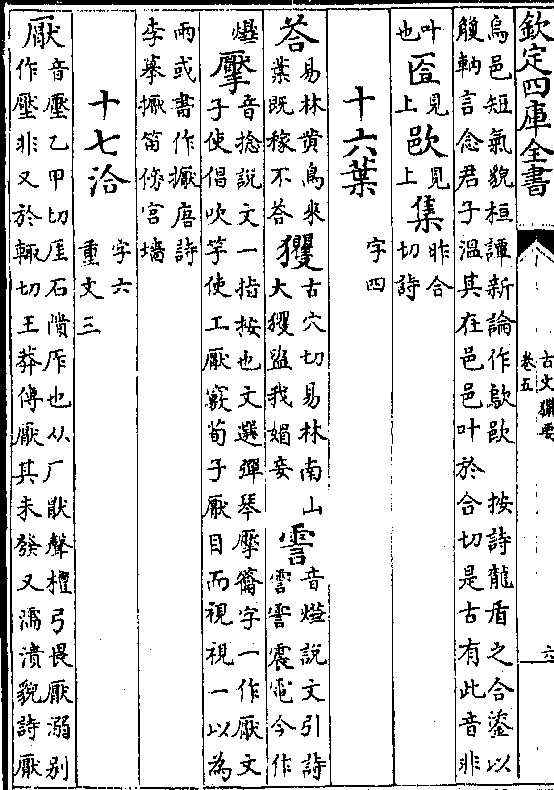 欽定四庫全書
古文獵要
卷五
六
烏邑短氣貌桓譚新論作歍 按詩龍盾之合鋈以
觼軜言念君子溫其在邑邑叶於合切是古有此音非
叶
也
匼
見
上
見
上
集
昨合
切詩
十六葉
字四
荅
易林黄鳥来
葉既稼不荅
玃
古穴切易林南山
大玃盜我媚妾
霅
音爗說文引詩
霅霅震電今作
爗
擪
音捻說文一指按也文選彈琴擪籥字一作厭文
子使倡吹竽使工厭竅荀子厭目而視視一以為
兩或書作擫唐詩
李摹擫笛傍宫墻
十七洽
字六
重文三
厭
音壓乙甲切厓石隤厏也从厂猒聲檀弓畏厭溺别
作壓非又於輒切王莽傳厭其未發又濡漬貌詩厭